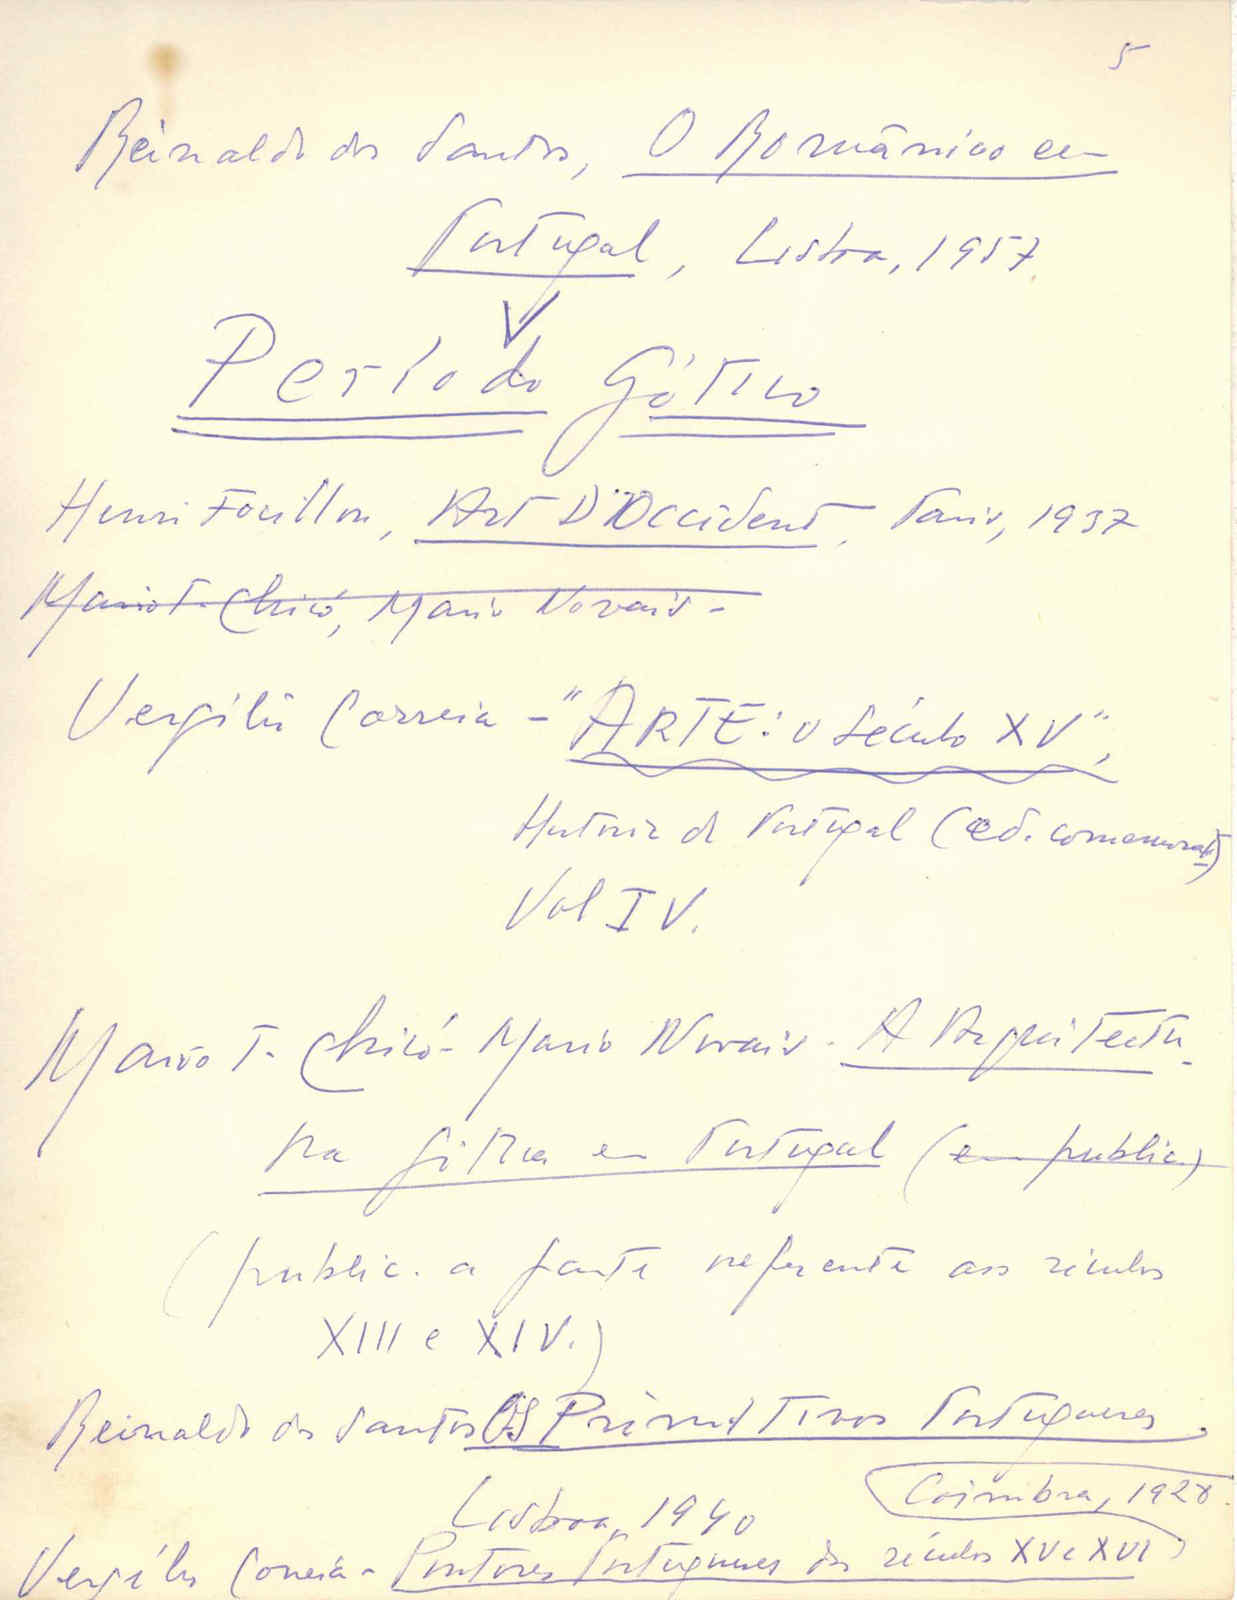 5
Reinaldo dos Santos, O Românico em
Portugal, Lisboa, 1957.
Período Gótico
Henri Focillon, Art D'Occident, Paris, 1937
Mario T. Chicó, Mario Novais -
Vergílio Correia - "ARTE: o século XV",
Historia de Portugal (ed. comemorat)
Vol IV.
Mario T. Chicó - Mario Novais - A Arquitectu-
ra gótica em Portugal (em public.)
(public. a parte referente aos séculos
XIII e XIV.)
Reinaldo dos Santos Os Primitivos Portugueses.
Lisboa, 1940
Coimbra, 1928.
Vergílio Correia - Pintores Portugueses dos séculos XV e XVI